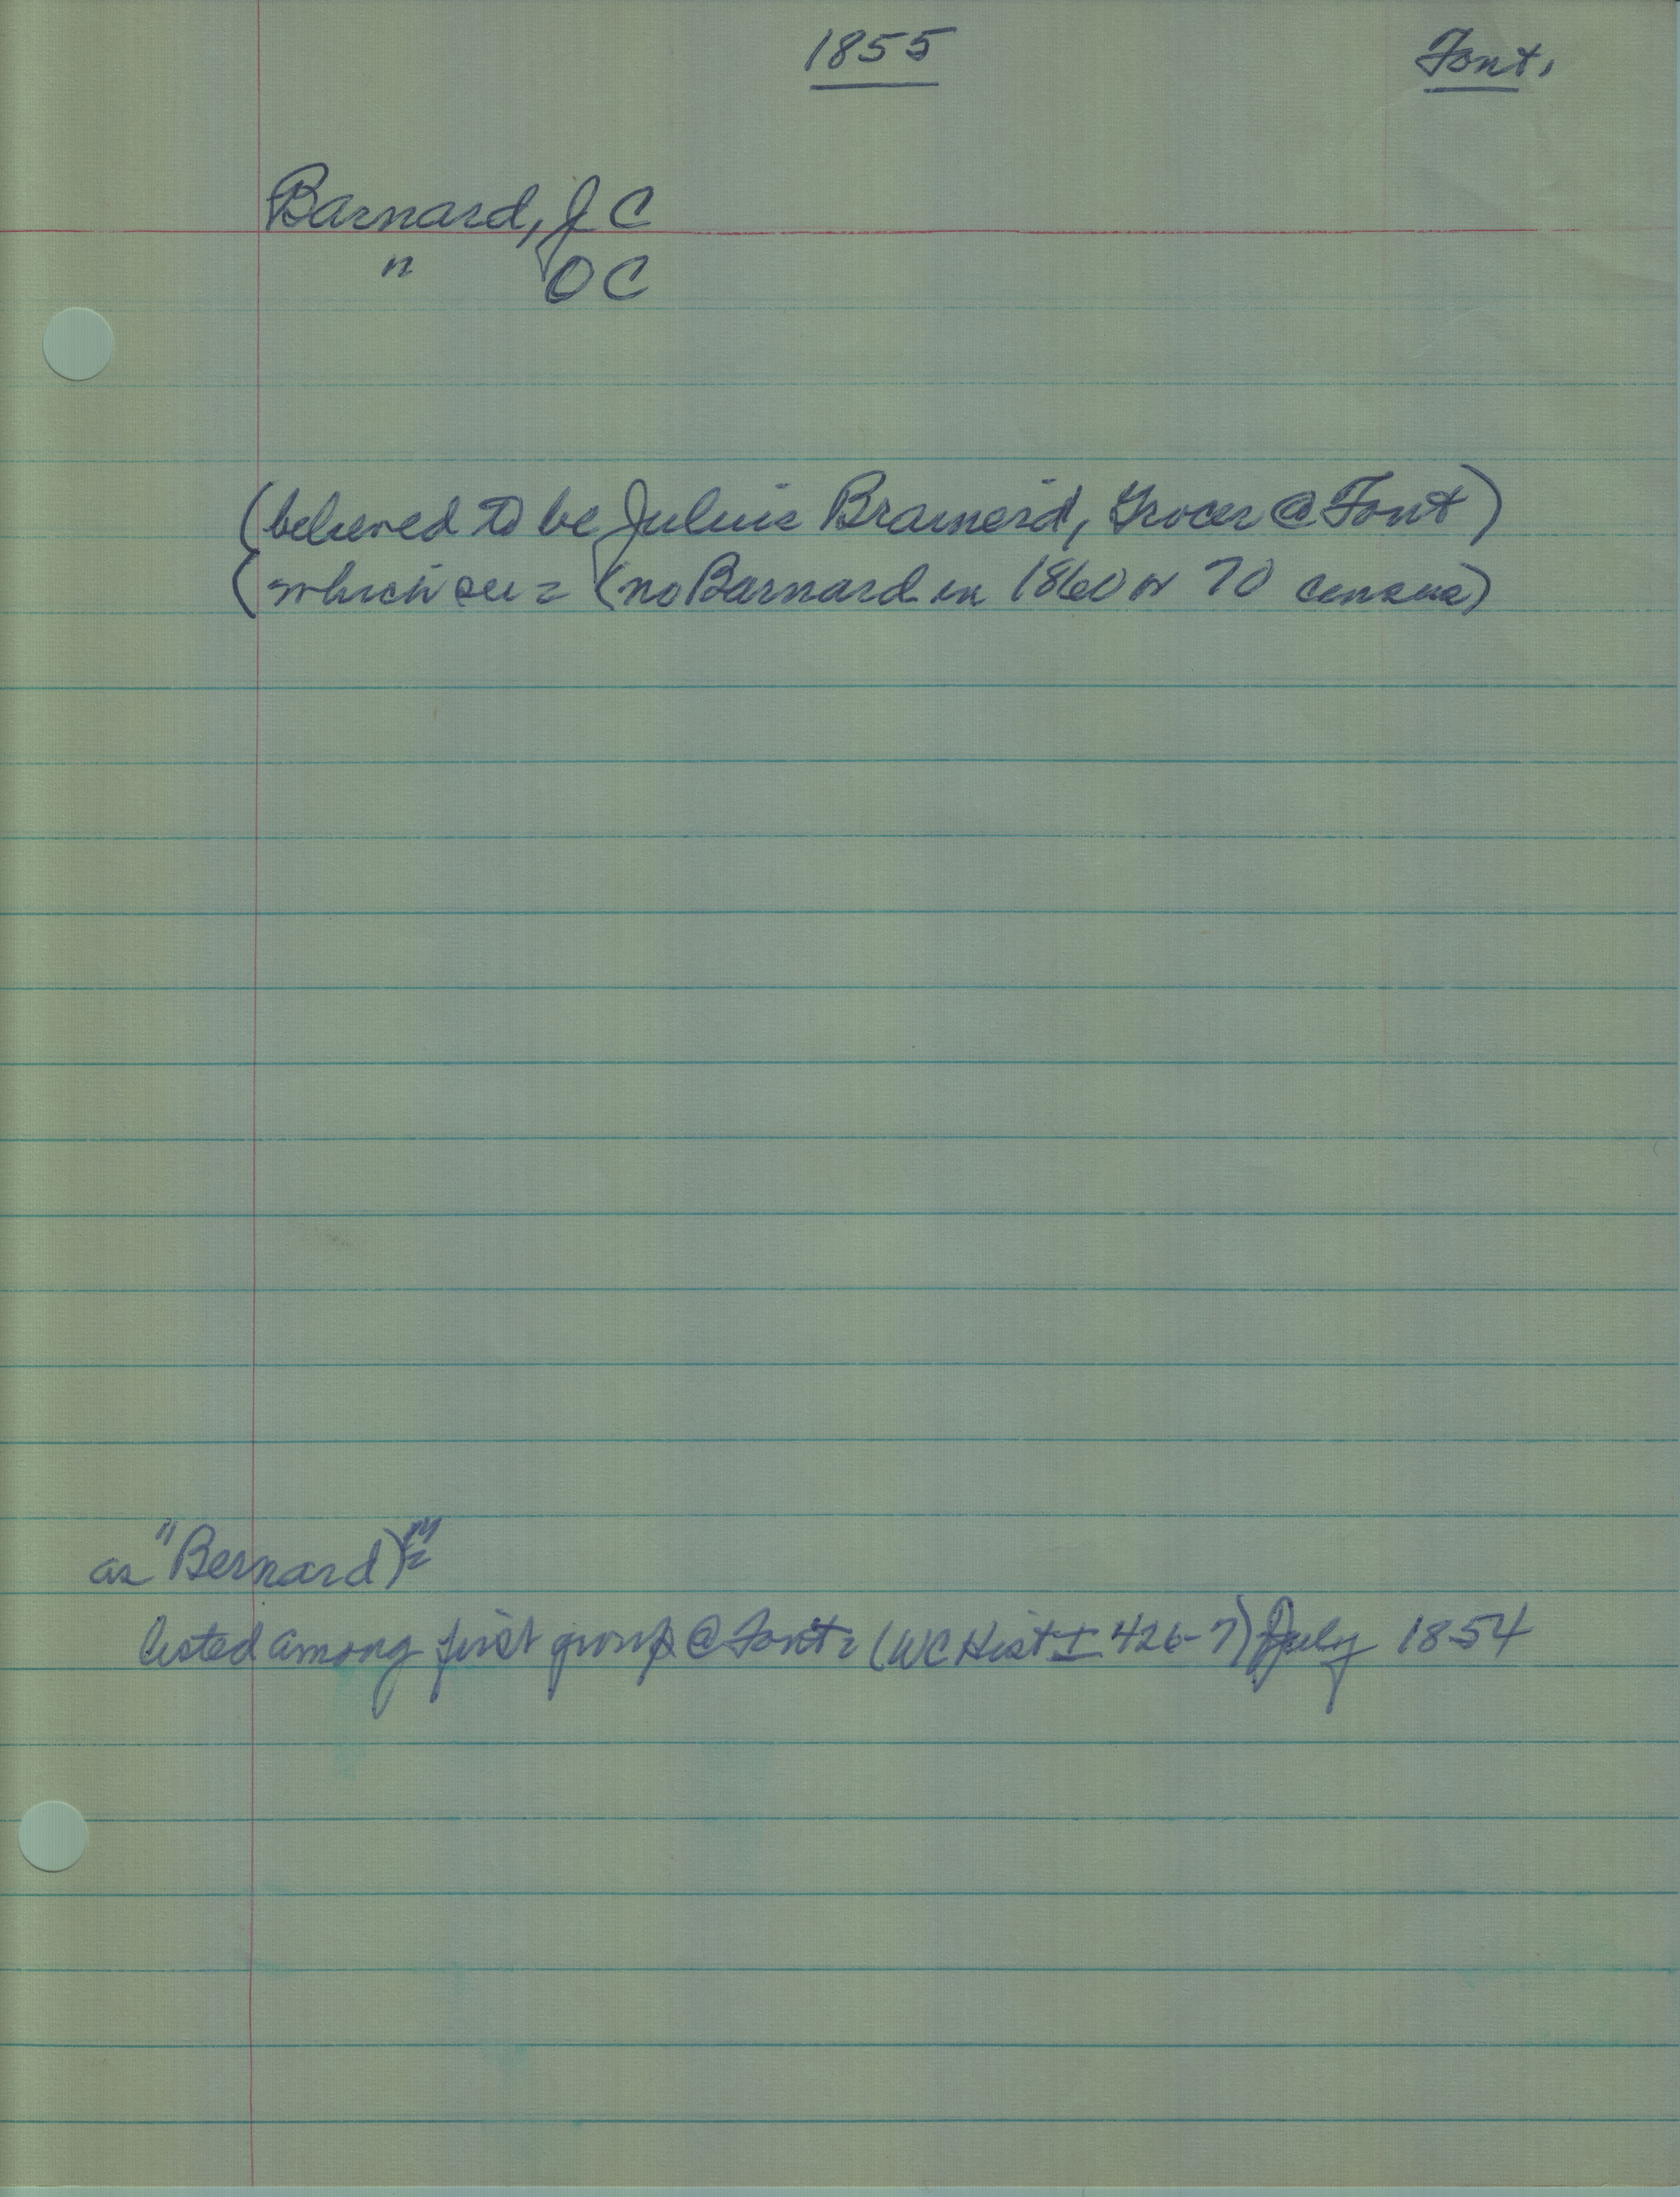 1855 Font.
Barnard, J C
" O C
(believed to be Julius Brainerd, Grocer @ Font)
(which see = (no Barnard in 1860 or 70 census)
as "Bernard)"
listed among first group @ Font = (WC Hist I 426-7) July 1854